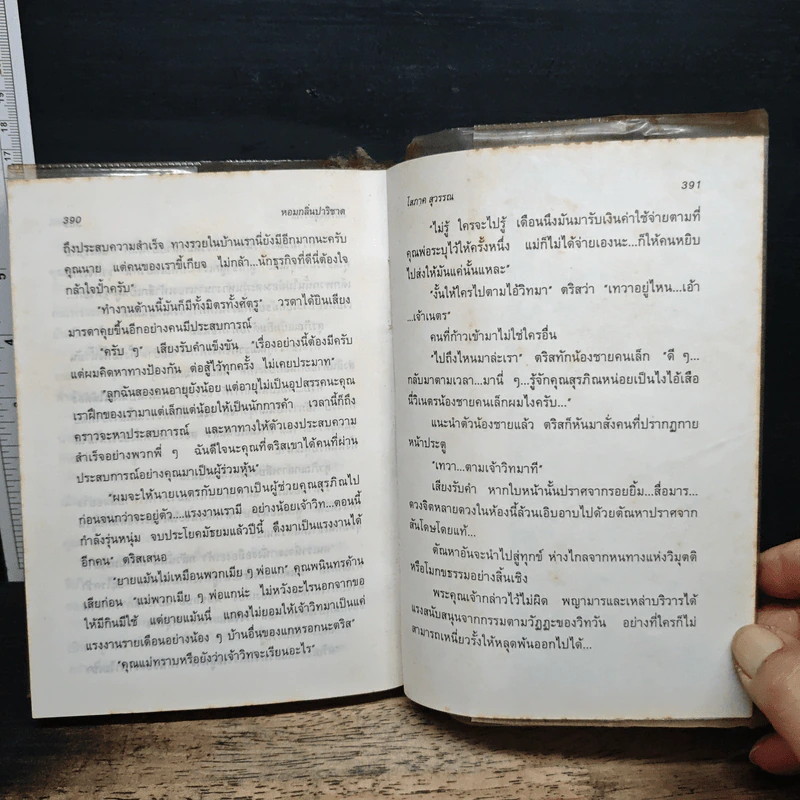 390
หอมกลิ่นปาริชาต
ถึงประสบความสำเร็จ ทางรวยในบ้านเรานี่ยังมีอีกมากนะครับ
คุณนาย แต่คนของเราขี้เกียจ ไม่กล้า...นักธุรกิจที่ดีนี่ต้องใจ
กล้าใจป้ำครับ"
"ทำงานด้านนี้มันก็มีทั้งมิตรทั้งศัตรู" วรดาได้ยินเสียง
มารดาคุยขึ้นอีกอย่างคนมีประสบการณ์
"ครับ ๆ" เสียงรับคำแข็งขัน "เรื่องอย่างนี้ต้องมีครับ
แต่ผมคิดหาทางป้องกัน ต่อสู้ไว้ทุกครั้ง ไม่เคยประมาท"
"ลูกฉันสองคนอายุยังน้อย แต่อายุไม่เป็นอุปสรรคนะคุณ
เราฝึกของเรามาแต่เล็กแต่น้อยให้เป็นนักการค้า เวลานี้ก็ถึง
คราวจะหาประสบการณ์ และหาทางให้ตัวเองประสบความ
สำเร็จอย่างพวกพี่ ๆ ฉันดีใจนะคุณที่ตริสเขาได้คนที่ผ่าน
ประสบการณ์อย่างคุณมาเป็นผู้ร่วมหุ้น"
"ผมจะให้นายเนตรกับยายดาเป็นผู้ช่วยคุณสุรภิณไป
ก่อนจนกว่าจะอยู่ตัว....แรงงานเรามี อย่างน้อยเจ้าวิท...ตอนนี้
กำลังรุ่นหนุ่ม จบประโยคมัธยมแล้วปีนี้ ดึงมาเป็นแรงงานได้
อีกคน" ตริสเสนอ
"ยายแม้นไม่เหมือนพวกเมีย ๆ พ่อแก" คุณพนินทรค้าน
เสียก่อน "แม่พวกเมีย ๆ พ่อแกน่ะ ไม่หวังอะไรนอกจากขอ
ให้มีกินมีใช้ แต่ยายแม้นนี่ แกคงไม่ยอมให้เจ้าวิทมาเป็นแค่
แรงงานรายเดือนอย่างน้อง ๆ บ้านอื่นของแกหรอกนะตริส"
"คุณแม่ทราบหรือยังว่าเจ้าวิทจะเรียนอะไร"
โสภาค สุวรรณ
391
"ไม่รู้ ใครจะไปรู้ เดือนนึงมันมารับเงินค่าใช้จ่ายตามที่
คุณพ่อระบุไว้ให้ครั้งหนึ่ง แม่ก็ไม่ได้จ่ายเองนะ...ก็ให้คนหยิบ
ไปส่งให้มันแค่นั้นแหละ"
"งั้นให้ใครไปตามไอ้วิทมา" ตริสว่า "เทวาอยู่ไหน...เอ้า
...เจ้าเนตร"
คนที่ก้าวเข้ามาไม่ใช่ใครอื่น
"ไปถึงไหนมาล่ะเรา" ตริสทักน้องชายคนเล็ก "ดี ๆ...
กลับมาตามเวลา...มานี่ ๆ...รู้จักคุณสุรภิณหน่อยเป็นไงไอ้เสือ
นี่วิเนตรน้องชายคนเล็กผมไงครับ..."
แนะนำตัวน้องชายแล้ว ตริสก็หันมาสั่งคนที่ปรากฏกาย
หน้าประตู
"เทวา...ตามเจ้าวิทมาที"
เสียงรับคำ หากใบหน้านั้นปราศจากรอยยิ้ม...สื่อมาร...
ดวงจิตหลายดวงในห้องนี้ล้วนเอิบอาบไปด้วยตัณหาปราศจาก
สันโดษโดยแท้...
ตัณหาอันจะนำไปสู่ทุกข์ ห่างไกลจากหนทางแห่งวิมุตติ
หรือโมกขธรรมอย่างสิ้นเชิง
พระคุณเจ้ากล่าวไว้ไม่ผิด พญามารและเหล่าบริวารได้
แรงสนับสนุนจากกรรมตามวัฏฏะของวิทวัน อย่างที่ใครก็ไม่
สามารถเหนี่ยวรั้งให้หลุดพ้นออกไปได้...